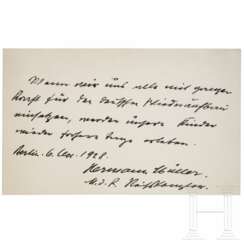 Wenn wir uns alle mit ganzer
Kraft für den deutschen Wiederaufbau
einsetzen, werden unsere Kinder
wieder frohere Tage erleben.
Berlin, 6. 1928.
Hermann Müller
Reichskanzler.